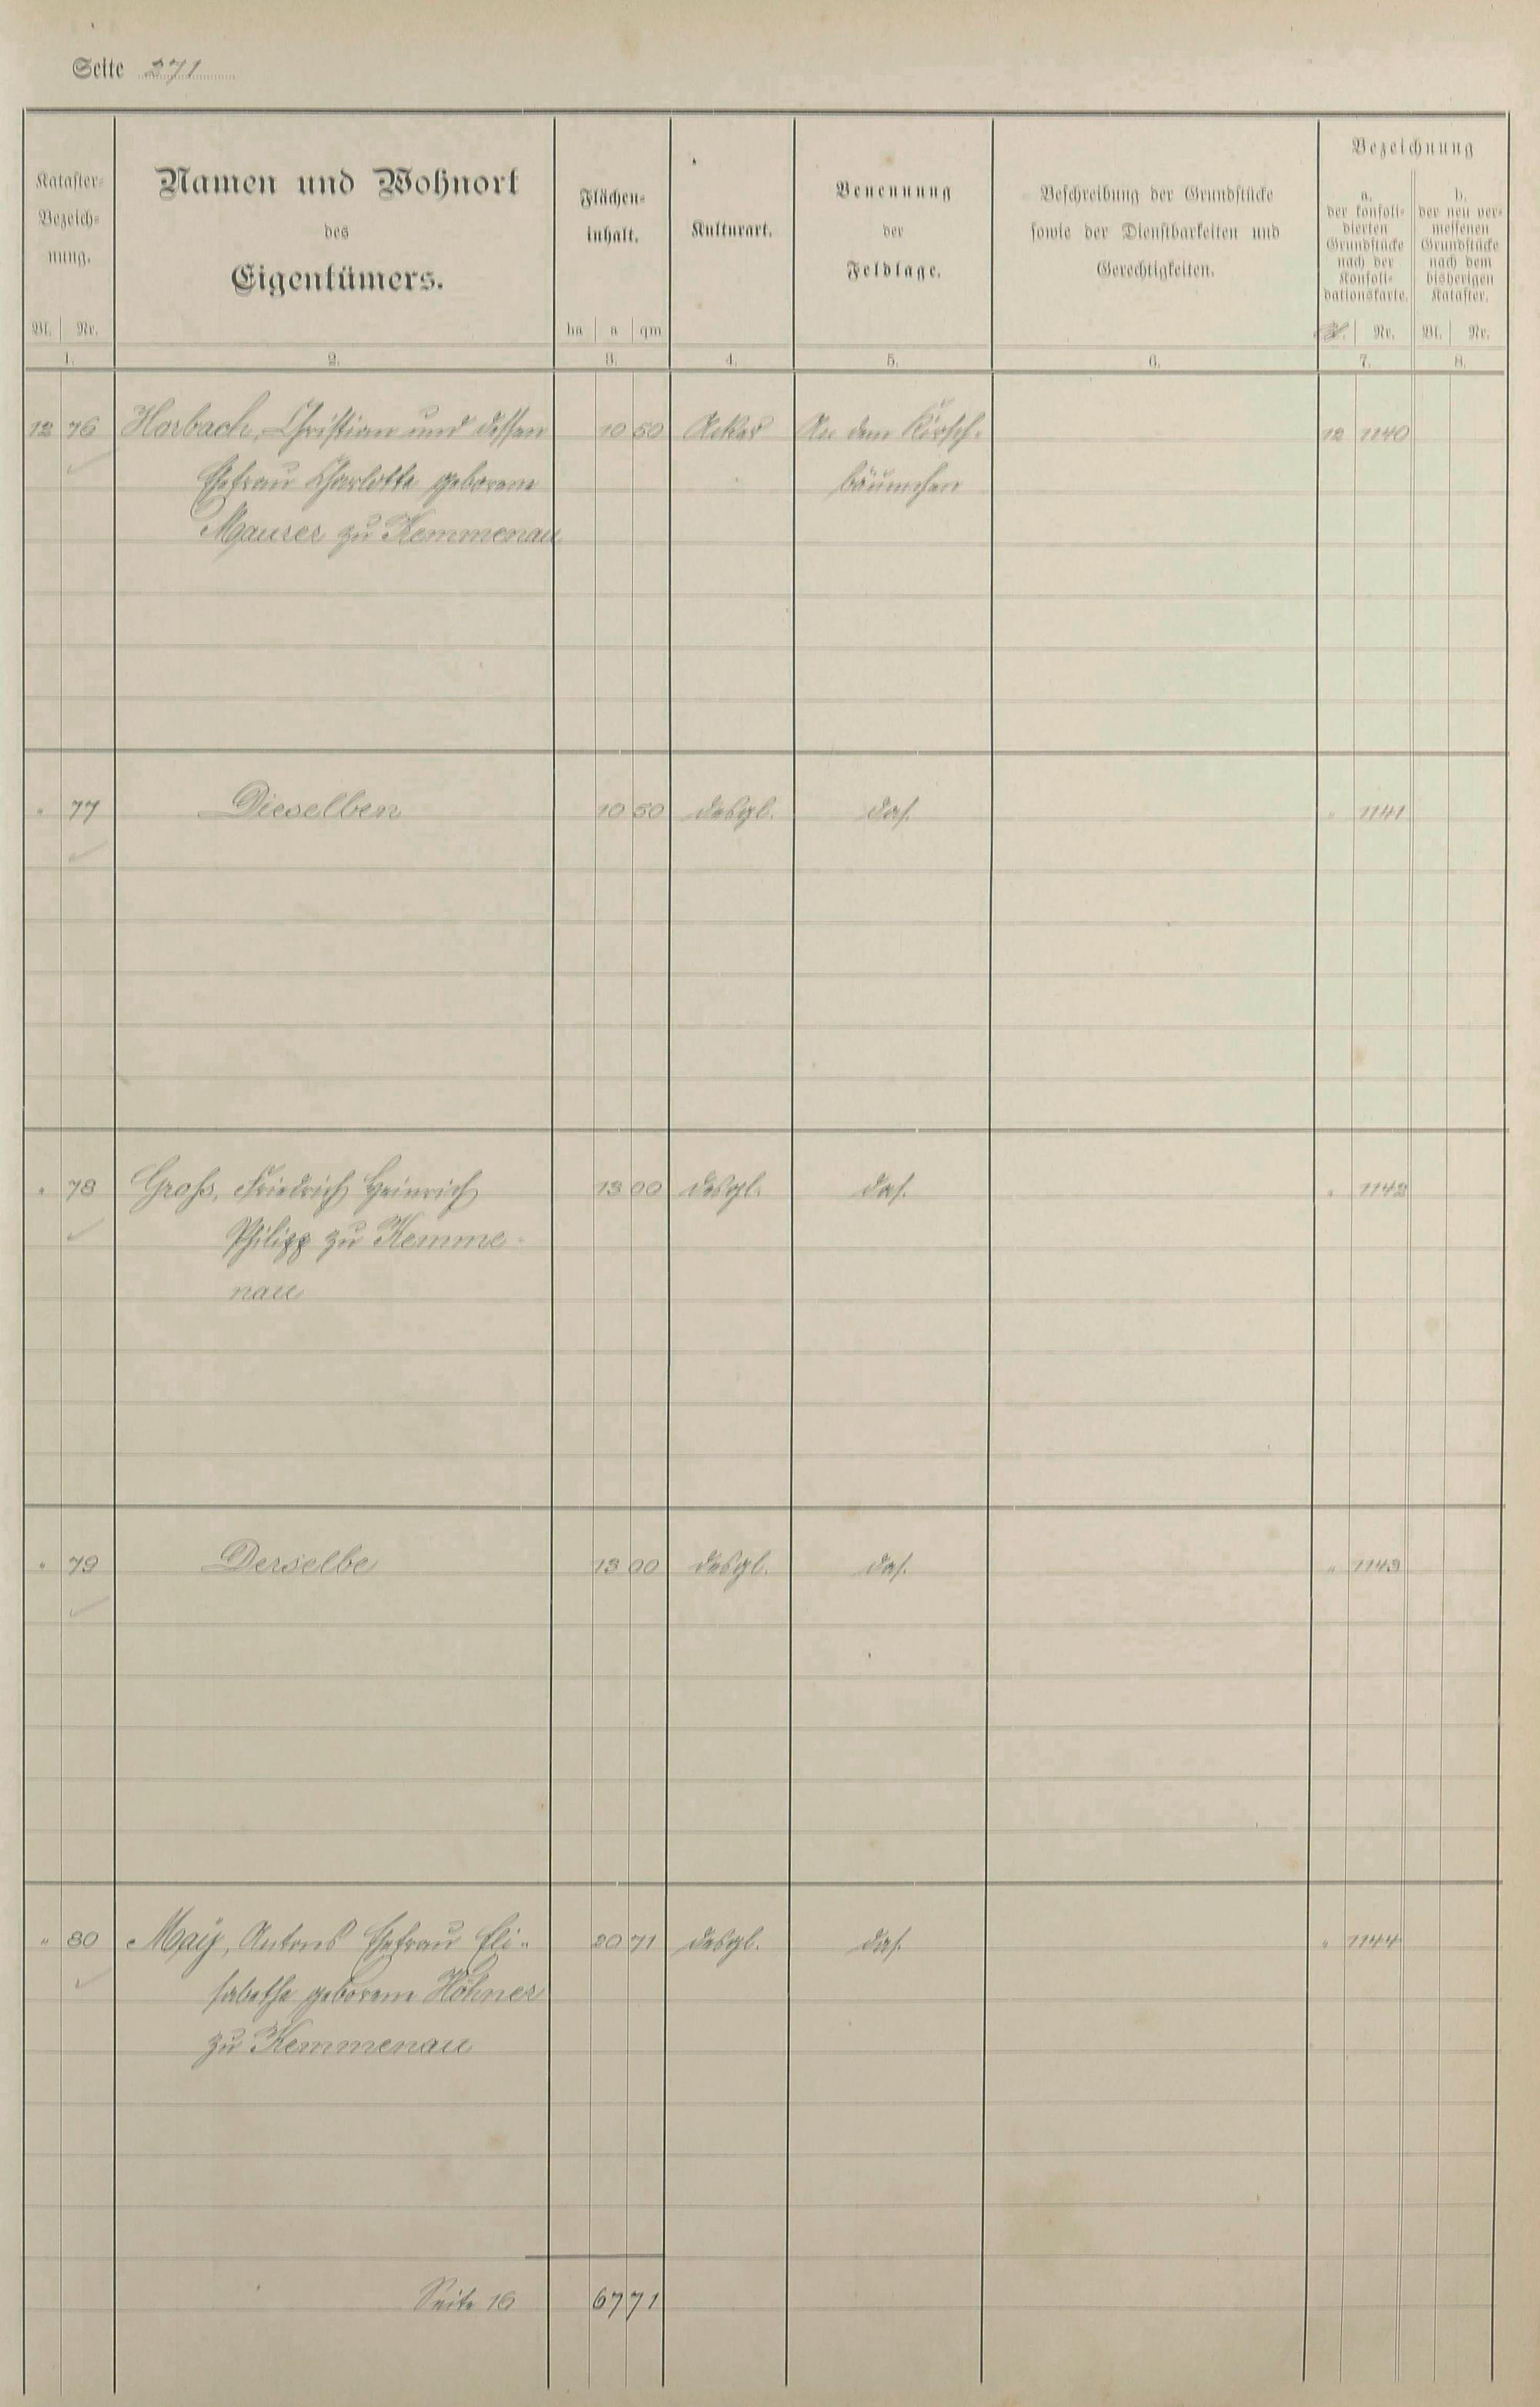 Seite 271
Kataster-
Bezeich-
nung.
Bl. Nr.
1.
Namen und Wohnort
des
Eigentümers.
2.
Flächen-
inhalt.
ha a qm
3.
Kulturart.
4.
Benennung
der
Feldlage.
5.
Beschreibung der Grundstücke
sowie der Dienstbarkeiten und
Gerechtigkeiten.
6.
Bezeichnung
a.
der konsoli-
dierten
Grundstücke
nach der
Konsoli-
dationskarte.
Bl. Nr.
7.
b.
der neu ver-
messenen
Grundstücke
nach dem
bisherigen
Kataster.
Bl. Nr.
8.
12 76 Horbach, Christian und dessen 10 50 Acker An dem Kirsch- 12 1140
Ehefrau Charlotte geborene bäumchen
Maurer zu Kemmenau
" 77 Dieselben 10 50 desgl. das. " 1141
" 78 Groß, Friedrich Heinrich 13 00 desgl. das. " 1142
Philipp zu Kemme-
nau
" 79 Derselbe 13 00 desgl. das. " 1143
" 80 Maÿ, Antons Ehefrau Eli- 20 71 desgl. das. " 1144
sabethe geborene Höhner
zu Kemmenau
Seite 16 67 71